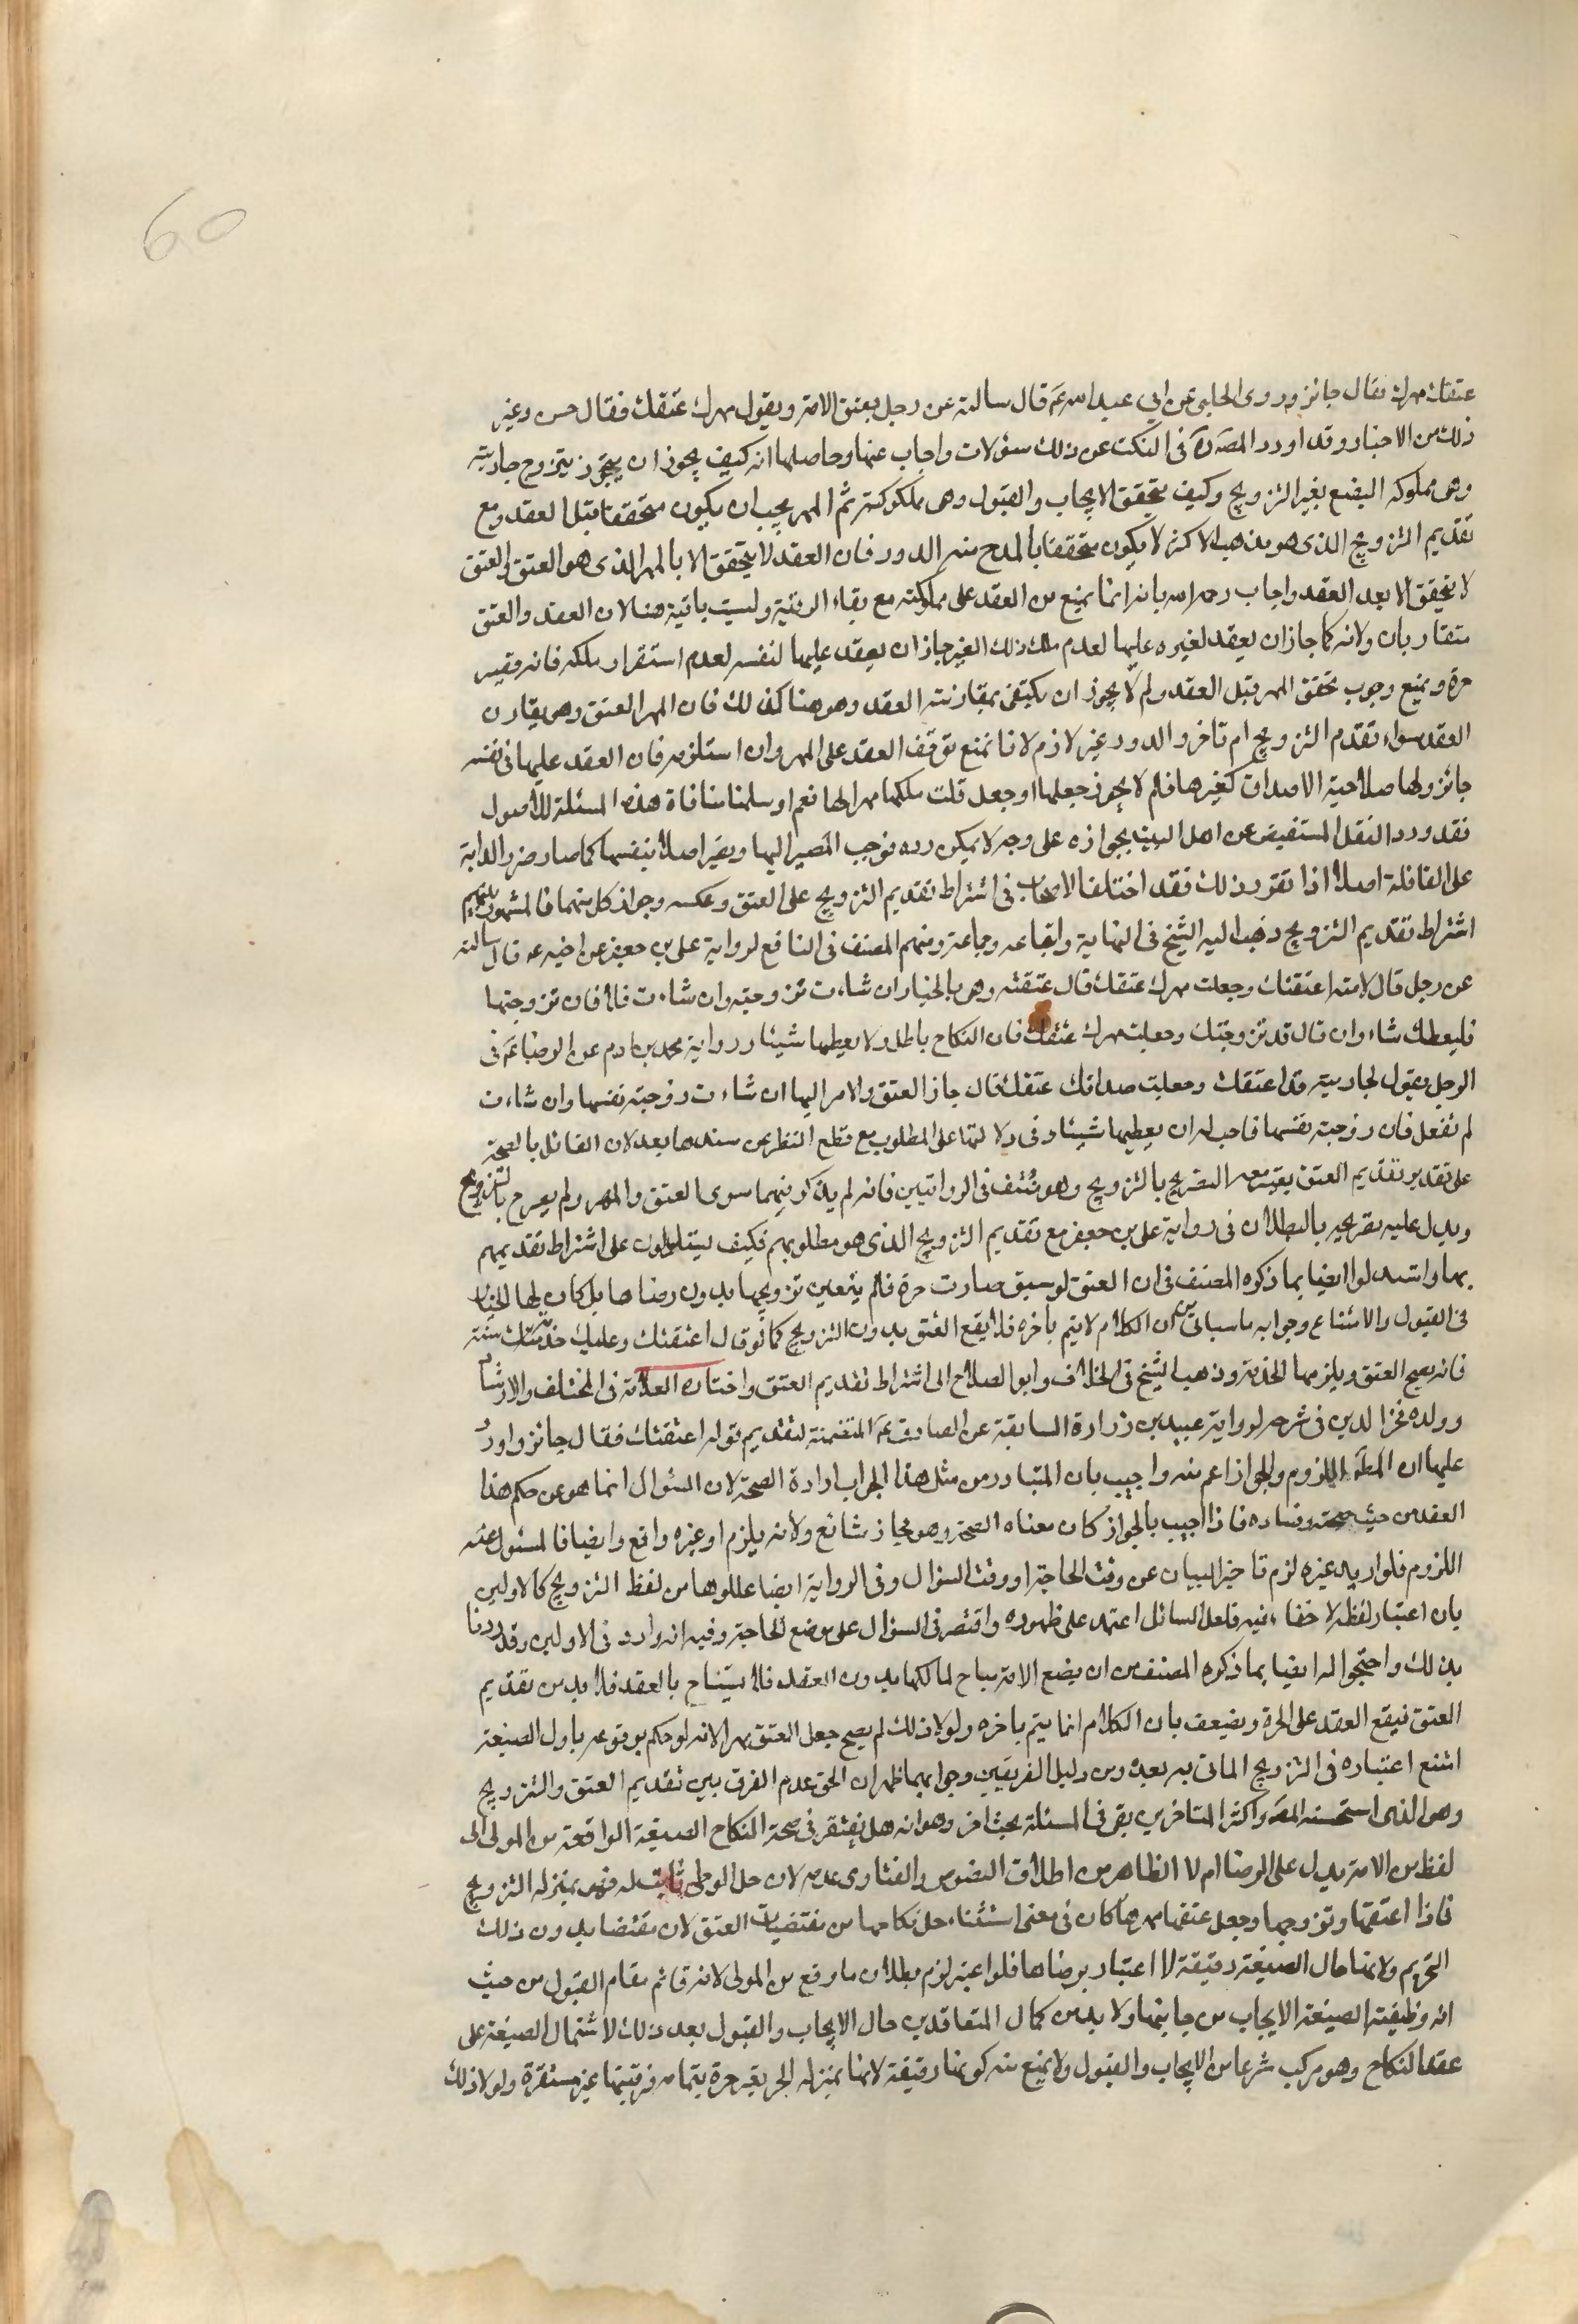 60
عتقك مهرك فقال جائز وروى الحلبي عن ابي عبد الله عَ قال سالته عن رجل يعتق الامة ويقول مهرك عتقك فقال حسن وغير
ذلك من الاخبار وقد اورد المصَ ره فى النكت عن ذلك سؤلات واجاب عنها وحاصلها انه كيف يجوز ان يتزوج جاريته
وهى مملوكه البضع بغير التزويج وكيف يتحقق الايجاب والقبول وهى مملوكته ثم المهر يجب ان يكون متحققا قبل العقد ومع
تقديم التزويج الذى هو مذهب الاكثر لا يكون متحققا يلزم منه الدور فان العقد لا يتحقق الا بالمهر الذى هو العتق والعتق
لا يتحقق الا بعد العقد واجاب رحمه الله بانه انما يمنع من العقد على مملوكته مع بقاء الرقية وليست باقية هنا لان العقد والعتق
متقاربان ولانه كما جاز ان يعقد لغيره عليها لعدم ملك ذلك الغير جاز ان يعقد عليها لنفسه لعدم استقرار ملكه فانه وقيه
حرة ويمنع وجوب تحقق المهر قبل العقد ولم لا يجوز ان يكتفى بمقارنته العقد وهو هنا كذلك فان المهر العتق وهى يقارن
العقد سواء تقدم التزويج ام تاخر والدور غير لازم لانا نمنع توقف العقد على المهر وان استلزمه فان العقد عليها فى نفسه
جائز ولها صلاحية الاصداق كغيرها فلم لا يجوز جعلها او جعل فلت ملكها مهرا لها نعم او سلمنا منافاة هذه المسئلة للاصول
فقد ورد النقل المستفيض عن اهل البيت بجوازه على وجه لا يمكن رده فوجب المصير اليها ويصير اصلا بنفسها كما صار ضرب الدية
على العاقلة اصلا اذا تقرر ذلك فقد اختلف الاصحاب فى اشتراط تقديم التزويج على العتق وعكسه وجواز كل منهما فالمشهور بينهم
اشتراط تقديم التزويج ذهب اليه الشيخ فى النهاية واتباعه وجماعة ومنهم المصنف فى النافع لرواية على بن جعفر عن اخيه عه قال سالته
عن رجل قال لامته اعتقتك وجعلت مهرك عتقك قال عتقته وهى بالخيار ان شاءت تزوجته وان شاءت فلا فان تزوجتها
فليعطك شاء وان قال قد تزوجتك وجعلت مهرك عتقك فان النكاح باطل ولا يعطيها شيئا ورواية محمد بن ادم عن الرضا عَ فى
الرجل يقول لجاريته قد اعتقتك وجعلت صداقك عتقك قال جاز العتق والامر اليها ان شاءت زوجته نفسها وان شاءت
لم تفعل فان زوجته نفسها فاحب له ان يعطيها شيئا وفى دلالتهما على المطلوب مع قطع النظر عن سندها بعد لان القائل بالصحة
على تقدير تقديم العتق يعتبر معه التصريح بالتزويج وهو منتف فى الروايتين فانه لم يذكر فيهما سوى العتق والمهر ولم يصرح بالتزويج
ويدل عليه تصريحه بالبطلان فى رواية على بن جعفر مع تقديم التزويج الذى هو مطلوبهم فكيف يستدلون على اشتراط تقديمهم
بهما واستدلوا ايضا بما ذكره المصنف فى ان العتق لو سبق صارت حرة فلم يتعين تزويجها بدون رضاها بل كان لها الخيار
فى القبول والامتناع وجوابه ما سياتى من ان الكلام لا يتم باخره فلا يقع العتق بدون التزويج كما لو قال اعتقتك وعليك خدمتك سنة
فانه يصح العتق ويلزمها الخدمة وذهب الشيخ فى الخلاف وابو الصلاح الى اشتراط تقديم العتق واختاره العلامة فى المختلف والارشاد
وولده فخر الدين فى شرحه لرواية عبيد بن زرارة السابقة عن الصادق عَ المتضمنة لتقديم قوله اعتقتك فقال جائز واورد
عليها ان المطَ اللزوم والجواز اعم منه واجيب بان المتبادر من مثل هذا الجواب ارادة الصحة لان السؤال انما هو عن حكم هذا
العقد من حيث صحته وفساده فاذا اجيب بالجواز كان معناه الصحة وهو مجاز شائع ولانه يلزم او غيره واقع وايضا فالمسئول عنه
اللزوم فلو اريد غيره لزم تاخير البيان عن وقت الحاجة او وقت السؤال وفى الرواية ايضا عللوها من لفظ التزويج كالاولين
بان اعتبار لفظه لا خفاء فيه فلعل السائل اعتمد على ظهوره واقتصر فى السؤال على موضع الحاجة وفيه انه وارد فى الاولين وقد ردنا
بذلك واحتجوا له ايضا بما ذكره المصنف من ان بضع الامة مباح لمالكها بدون العقد فلا يستباح بالعقد فلا بد من تقديم
العتق فيقع العقد على الحرة ويضعف بان الكلام انما يتم باخره ولولا ذلك لم يصح جعل العتق مهرا لانه لو حكم بوقوعه باول الصيغة
امتنع اعتباره فى التزويج الماتى به بعده ومن دليل الفريقين وجوابهما ظهر ان الحق عدم الفرق بين تقديم العتق والتزويج
وهو الذى استحسنه المصَ واكثر المتاخرين بقى فى المسئلة بحث اخر وهو انه هل يفتقر فى صحة النكاح الصيغة الواقعة من المولى الى
لفظ من الامة يدل على الرضا ام لا الظاهر من اطلاق النصوص والفتاوى عدمه لان حل الوطى ثابت له فهى بمنزلة التزويج
فاذا اعتقها وتزوجها وجعل عتقها مهرها كان فى معنى استثناء حل نكاحها من مقتضيات العتق لان مقتضاه بدون ذلك
التحريم ولانها حال الصيغة رقيقة لا اعتبار برضاها فلو اعتبر لزم بطلان ما وقع من المولى لانه قائم مقام القبول من حيث
انه وظيفته الصيغة الايجاب من جانبها ولا بد من كمال المتعاقدين حال الايجاب والقبول بعد ذلك لاشتمال الصيغة على
عقد النكاح وهو مركب شرعا من الايجاب والقبول ولا يمنع منه كونها رقيقة لانها بمنزلة الحر يقيه حرة بتمامه فرقيتها غير مستقرة ولولا ذلك